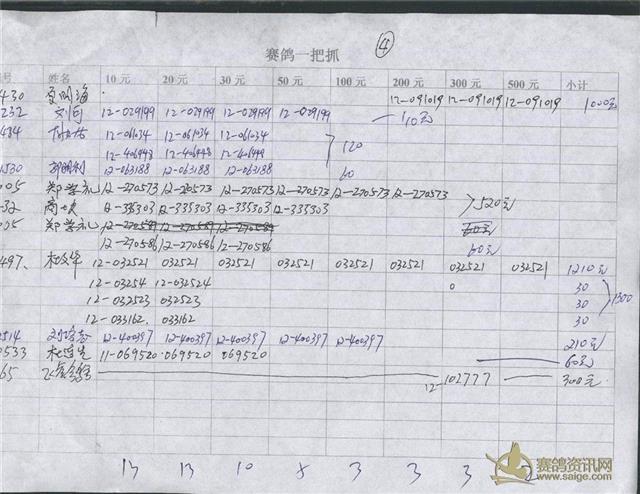 ④
赛鸽一把抓
号 姓名 10元 20元 30元 50元 100元 200元 300元 500元 小计
430 12-091019 12-091019 12-091019 1000元
232 12-029199 12-029199 12-029199 12-029199 110元
484 12-061034 12-061034 12-061034
12-406498 12-406498 12-406499 120
530 12-063188 12-063188 12-063188 60
005 郑学礼 12-270573 12-270573 12-270573 12-270573 12-270573 12-270573
32 12-335303 12-335303 12-335303 12-335303 520元
005 郑学礼 12-270589 12-270589 12-270589 60元
12-270586 12-270586 12-270586 60元
497 杜文华 12-032521 032521 032521 032521 032521 032521 032521 032521 1210元
12-03254 12-032524 0 30
12-032523 032523 30 1300
12-033162 033162 30
514 12-400397 12-400397 12-400397 12-400397 12-400397 210元
0533 11-069520 069520 069520 60元
65 12-102777 300元
13 13 10 5 3 3 3 2
赛鸽资讯网
www.saige.com